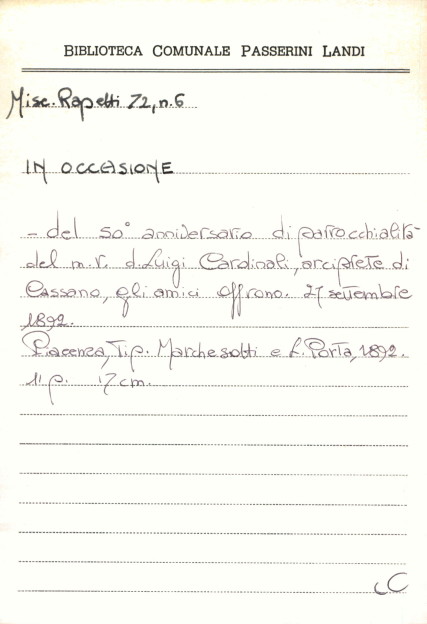 BIBLIOTECA COMUNALE PASSERINI LANDI
Misc. Rapetti 72, n. 6
IN OCCASIONE
- del 50° anniversario di parrocchialità
del m.r. d. Luigi Cardinali, arciprete di
Cassano, gli amici offrono. 27 settembre
1892.
Piacenza, Tip. Marchesotti e L. Porta, 1892.
11 p. 17 cm.